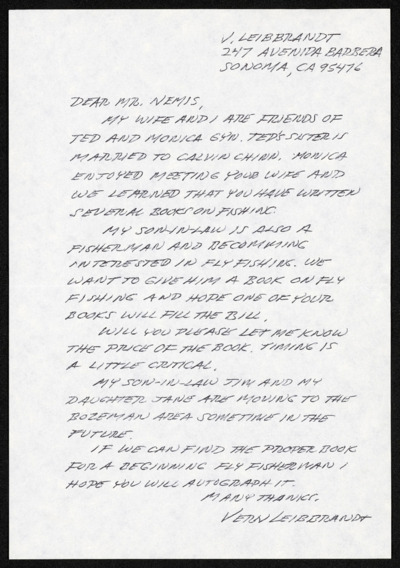 V. LEIBBRANDT
247 AVENIDA BARBERA
SONOMA, CA 95476
DEAR MR. NEMIS,
MY WIFE AND I ARE FRIENDS OF
TED AND MONICA GYN. TED'S SISTER IS
MARRIED TO CALVIN CHINN. MONICA
ENJOYED MEETING YOUR WIFE AND
WE LEARNED THAT YOU HAVE WRITTEN
SEVERAL BOOKS ON FISHING.
MY SON-IN-LAW IS ALSO A
FISHERMAN AND BECOMMING
INTERESTED IN FLY FISHING. WE
WANT TO GIVE HIM A BOOK ON FLY
FISHING AND HOPE ONE OF YOUR
BOOKS WILL FILL THE BILL.
WILL YOU PLEASE LET ME KNOW
THE PRICE OF THE BOOK. TIMING IS
A LITTLE CRITICAL.
MY SON-IN-LAW TIM AND MY
DAUGHTER JANE ARE MOVING TO THE
BOZEMAN AREA SOMETIME IN THE
FUTURE.
IF WE CAN FIND THE PROPER BOOK
FOR A BEGINNING FLY FISHERMAN I
HOPE YOU WILL AUTOGRAPH IT.
MANY THANKS.
VERN LEIBBRANDT